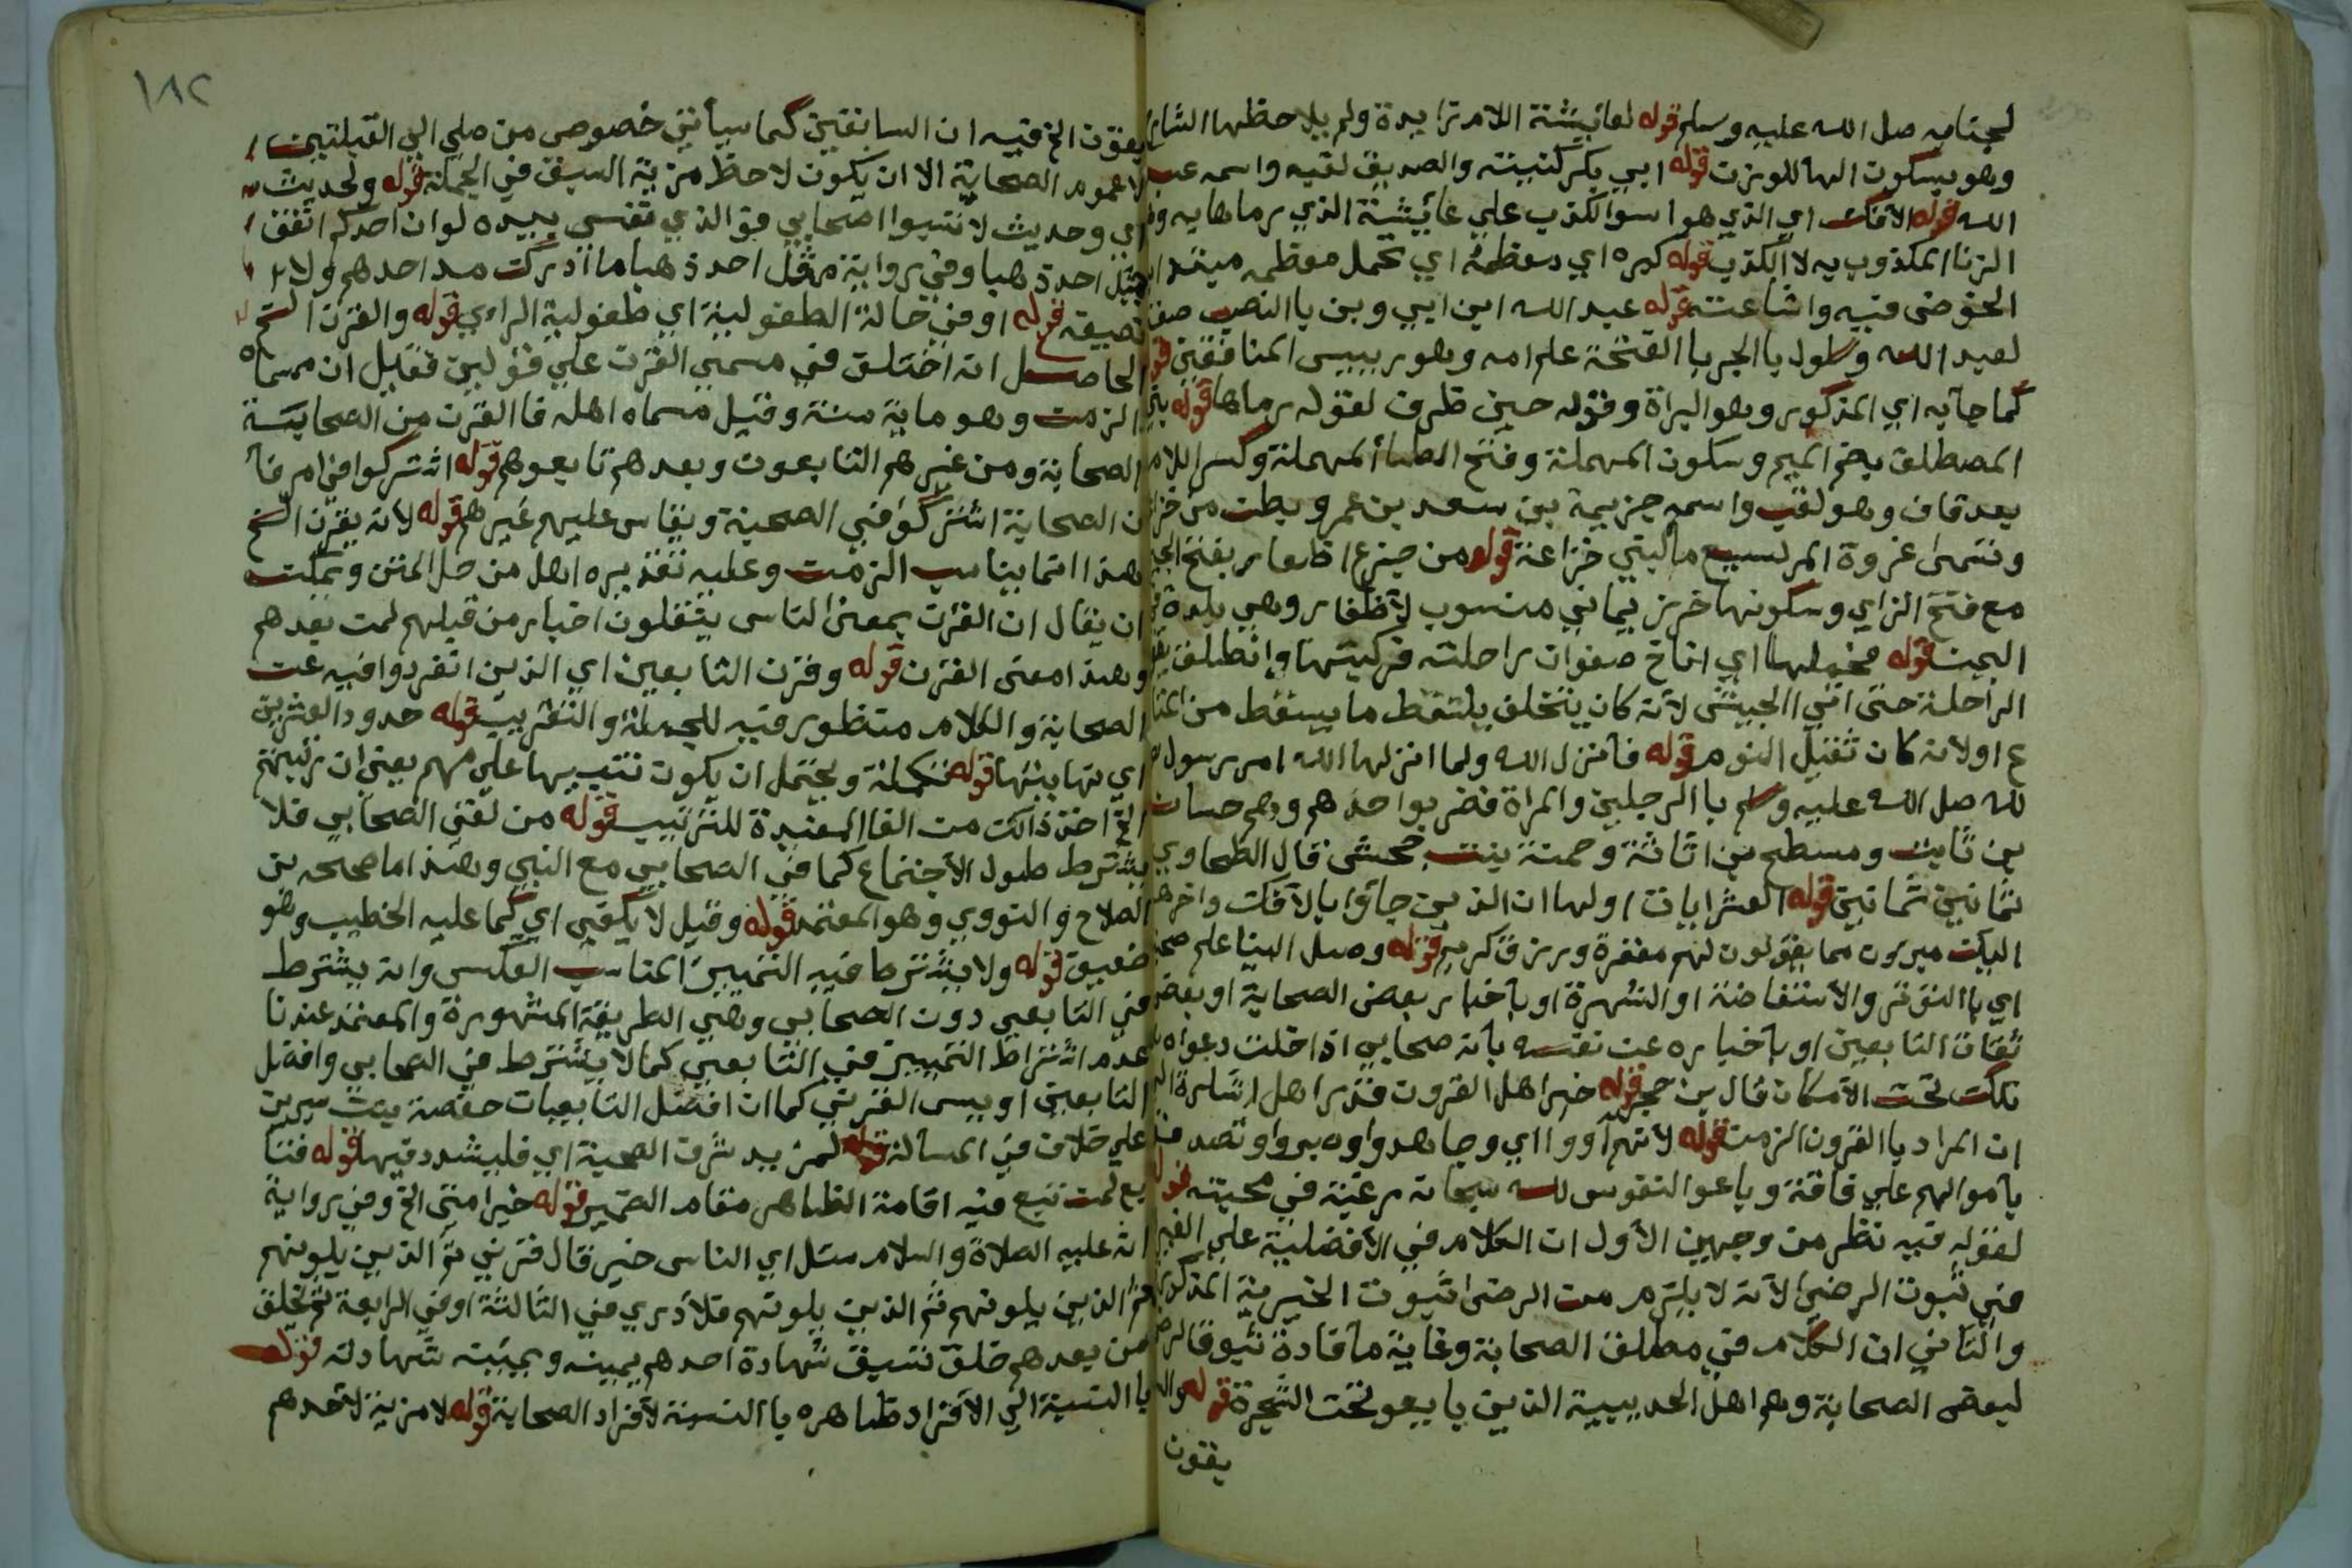 لجنابه صل الله عليه وسلم قوله لعائيشة اللام زايدة ولم يلاحظها الشار
وهو بسكون الها للوزن قوله ابي بكر كنيته والصديق لقبه واسمه عبد
الله قوله الافك اي الذي هو اسوا الكذب علي عائيشة الذي رماها به
الزنا المكذوب به لا الكذب قوله كبره اي معظمه اي تحمل معظمه مبتد
الخوض فيه واشاعته قوله عبد الله ابن ابي وبن با النصب صف
لعبد الله وسلول با الجر با الفتحة علم امه وهو رييس المنافقين
كما جآ به اي المذكور وهو البراة وقوله حين ظرف لقوله رماها قوله بني
المصطلق بضم الميم وسكون المهملة وفتح الطا المهملة وكسر اللام
بعد قاف وهو لقب واسمه جزيمة بن سعد بن عمرو بطن من خزا
وتسمى غزوة المريسيع ما لبني خزاعة قوله من جزع اظفار بفتح الجيم
مع فتح الزاي وسكونها خرز يماني منسوب لاظفار وهي بلدة
اليمن قوله فحملها اي اناخ صفوان راحلته فركبتها وانطلق يقو
الراحلة حتى اتي الجيش لآنه كان يتخلف يلتقط ما يسقط من المتا
ع اولانه كان ثقيل النوم قوله فآنزل الله ولما انزلها الله امر رسول
لله صل الله عليه وسلم با الرجلين والمراة فضربوا حدهم وهم حسان
بن ثابت ومسطح بن اثاثة وحمنة بنت جحش قال الطحاوي
ثمانين ثمانين قوله العشر ايات اولها ان الذين جآؤا بالآفك واخرها
اليك مبرون مما يقولون لهم مغفرة ورزق كريم قوله وصل الينا علم صحبة
اي با التوتر والآستفاضة او الشهرة او بآخبار بعض الصحابة او بعض
ثقات التابعين او بآخباره عن نفسه بآنه صحابي اذا دخلت دعواه
تلك تحت الآمكان قال بن حجر قوله خير اهل القرون قدر اهل اشارة الي
ان المراد با القرون الزمن قوله لآنهم آووا اي وجاهدوا
بآموالهم علي فاقة وباعو النفوس لله سبحانه مرغبة في محبته قوله
لقوله فيه نظر من وجهين الأول ان الكلام في الآفضلية علي الغير
في ثبوت الرضى لآنه لا يلزم من الرضى اثبوت الخيرية المذكورة
والثاني ان الكلام في مطلق الصحابة وغاية مآفادة ثبوة الرضى
لبعض الصحابة وهم اهل الحديبية الذين بايعو تحت الشجرة قوله
يفون
يفون الخ فيه ان السابقين كما سيآتي خصوص من صلي الي القبلتين
لا عموم الصحابة الا ان يكون لاحظ مزية السبق في الجملة قوله ولحديث
اي وحديث لا تسبوا اصحابي فو الذي نفسي بيده لو ان احدكم انفق
مثل احد ذهبا وفي رواية مثل احد ذهبا ما ادركت مد احدهم ولا
نصيفه قوله او في حالة الطفولية اي طفولية الراءي قوله والقرن الخ
الحاصل انه اختلف في مسمي القرن علي قولين فقيل ان مسماه
الزمن وهو ماية سنة وقيل مسماه اهله فا القرن من الصحابة
الصحابة ومن غيرهم التابعون وبعدهم تابعوهم قوله اشتركوا في امر فآ
ن الصحابة اشتركو في الصحبة ويقاس عليهم غيرهم قوله لانه يقرن الخ
هذا انما يناسب الزمن وعليه تقديره اهل من حل المتن ويمكن
ان يقال ان القرن بمعنى الناس ينقلون اخبار من قبلهم لمن بعدهم
وهذا معنى القرن قوله وقرن التابعين اي الذين انفردوا فيه عن
الصحابة والكلام منظور فيه للجملة والتقريب قوله حدود العشرين
اي نهايتها قوله تكملة ويحتمل ان يكون تنبيها علي مهم يعني ان ترتيبهم
الخ اخذ ذالك من الفا المفيدة للترتيب قوله من لقي الصحابي فلا
يشترط طول الآجتماع كما في الصحابي مع النبي وهذا ما صححه بن
الصلاح والنووي وهو المعتمد قوله وقيل لا يكفي اي كما عليه الخطيب وهو
ضعيف قوله ولا يشترط فيه التمييز المناسب العكس وانه يشترط
في التابعي دون الصحابي وهي الطريقة المشهورة والمعتمد عندنا
عدم اشتراط التمييز في التابعي كما لا يشترط في الصحابي وافضل
التابعين اويس القرني كما ان افضل التابعيات حفصة بنت سيرين
علي خلاف في المسآلة قوله لمزيد شرف الصحبة اي فليشدد فيها قوله فتا
بع لمن تبع فيه اقامة الظاهر مقام الضمير قوله خير امتي الخ وفي رواية
انه عليه الصلاة والسلام سئل اي الناس خير قال قرني ثم الذين يلونهم
ثم الذين يلونهم ثم الذين يلونهم فلا أدري في الثالثة او في الرابعة ثم يخلف
من بعدهم خلق تسبق شهادة احدهم يمينه ويمينه شهادته قوله
با النسبة الي الآفراد ظاهره با النسبة لآفراد الصحابة قوله لا مزية لآحدهم
١٨٢